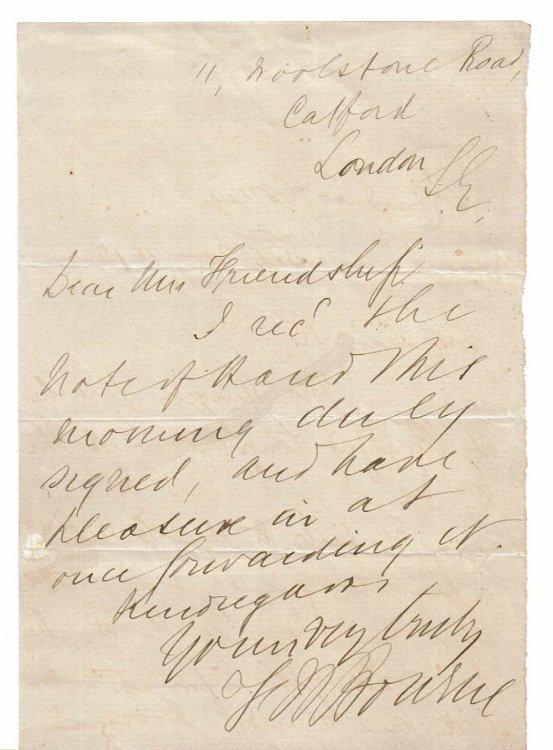 11, Woolstone Road,
Catford
London S.E.
Dear Mrs Friendship
I recd the
Note of Hand this
morning duly
signed, and have
pleasure in at
once forwarding it.
Kind regards
Yours very truly
Bourne